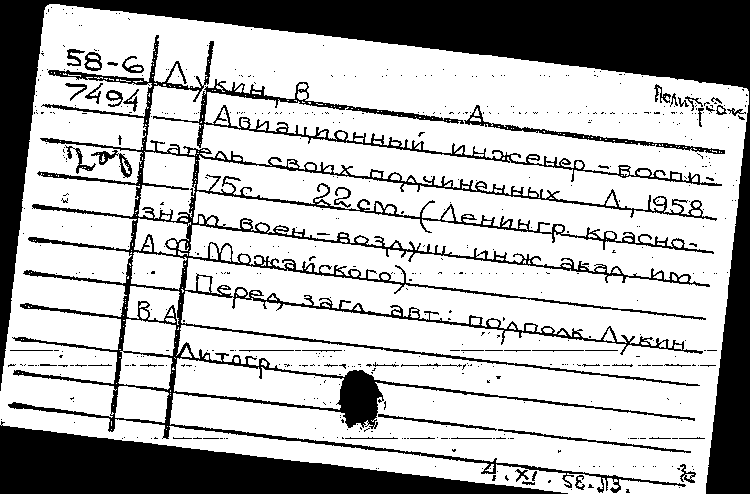 58-6
7494
Лукин, В А
Авиационный инженер - воспи-
татель своих подчиненных. Л., 1958
75с. 22см. (Ленингр. красно-
знам. воен.-воздуш. инж. акад. им.
А.Ф. Можайского).
Перед загл. авт.: подполк. Лукин
В.А.
Литогр.
4.XI.58.ЛЗ.